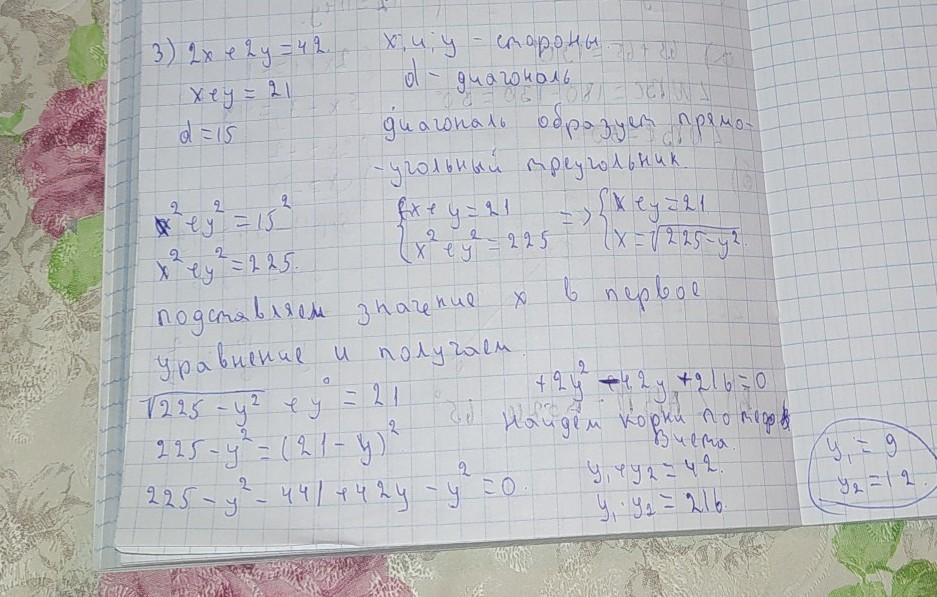 3) 2x + 2y = 42
x + y = 21
d = 15
x, и, y - стороны.
d - диагональ
диагональ образует прямо-
-угольный треугольник.
x² + y² = 15²
x² + y² = 225.
{x + y = 21 => {x + y = 21
{x² + y² = 225 {x = √225 - y².
подставляем значение x в первое
уравнение и получаем.
√225 - y² + y = 21
225 - y² = (21 - y)²
225 - y² - 441 + 42y - y² = 0.
+2y² - 42y + 216 = 0
Найдём корни по теор
Виета.
y₁ + y₂ = 42.
y₁ · y₂ = 216.
y₁ = 9
y₂ = 12.